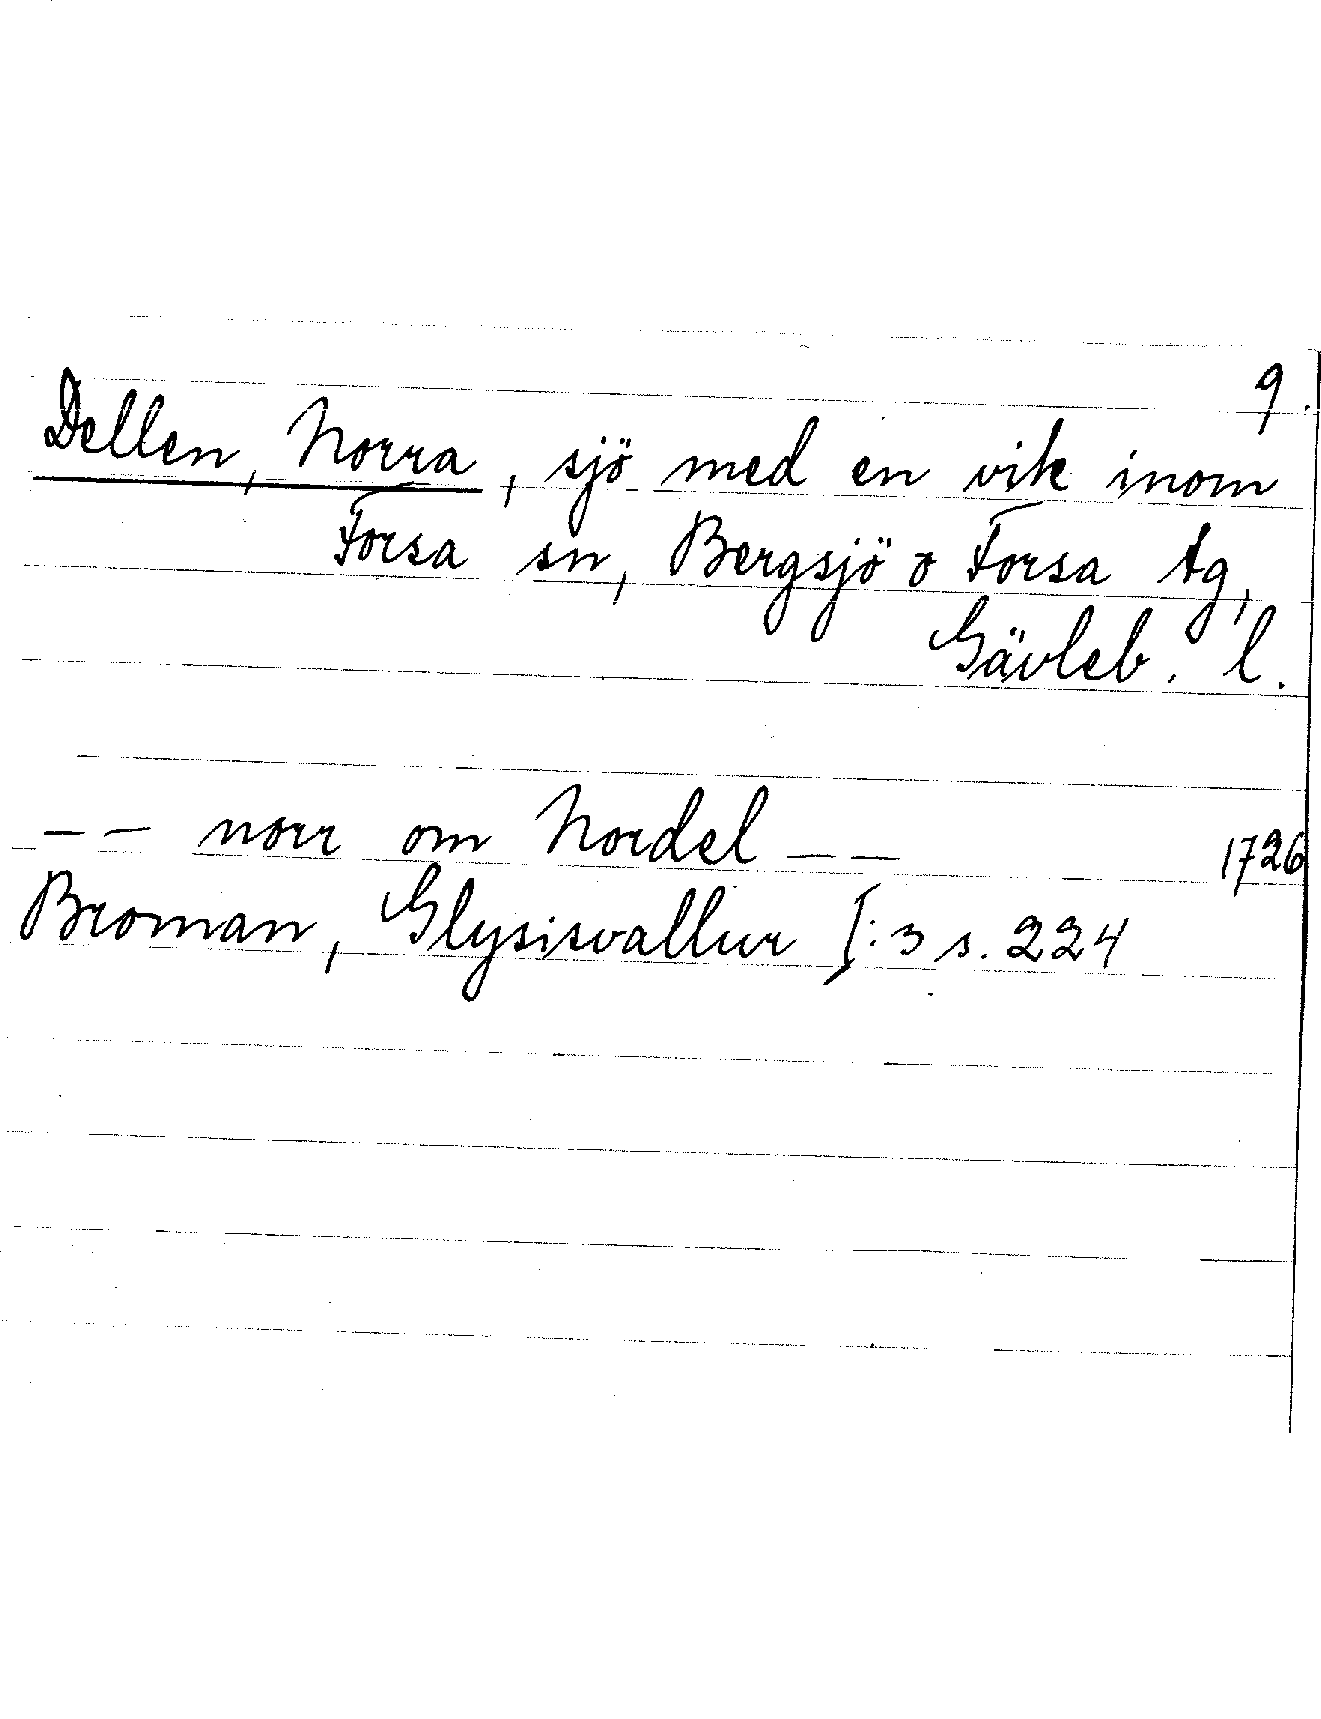 9.
Dellen, Norra, sjö med en vik inom
Forsa sn, Bergsjö o Forsa tg,
Gävleb. l.
— — norr om Nordel — — 1726
Broman, Glysisvallur I:3 s. 224